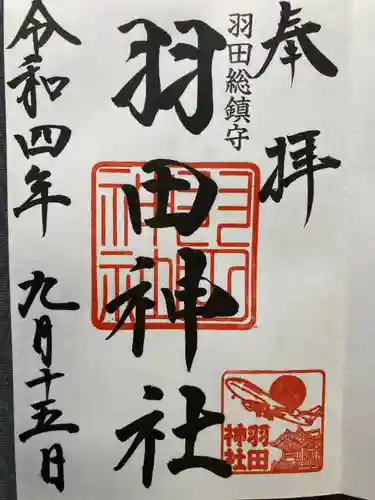 奉拝
羽田総鎮守
羽田神社
羽田神社
羽田
神社
令和四年 九月十五日